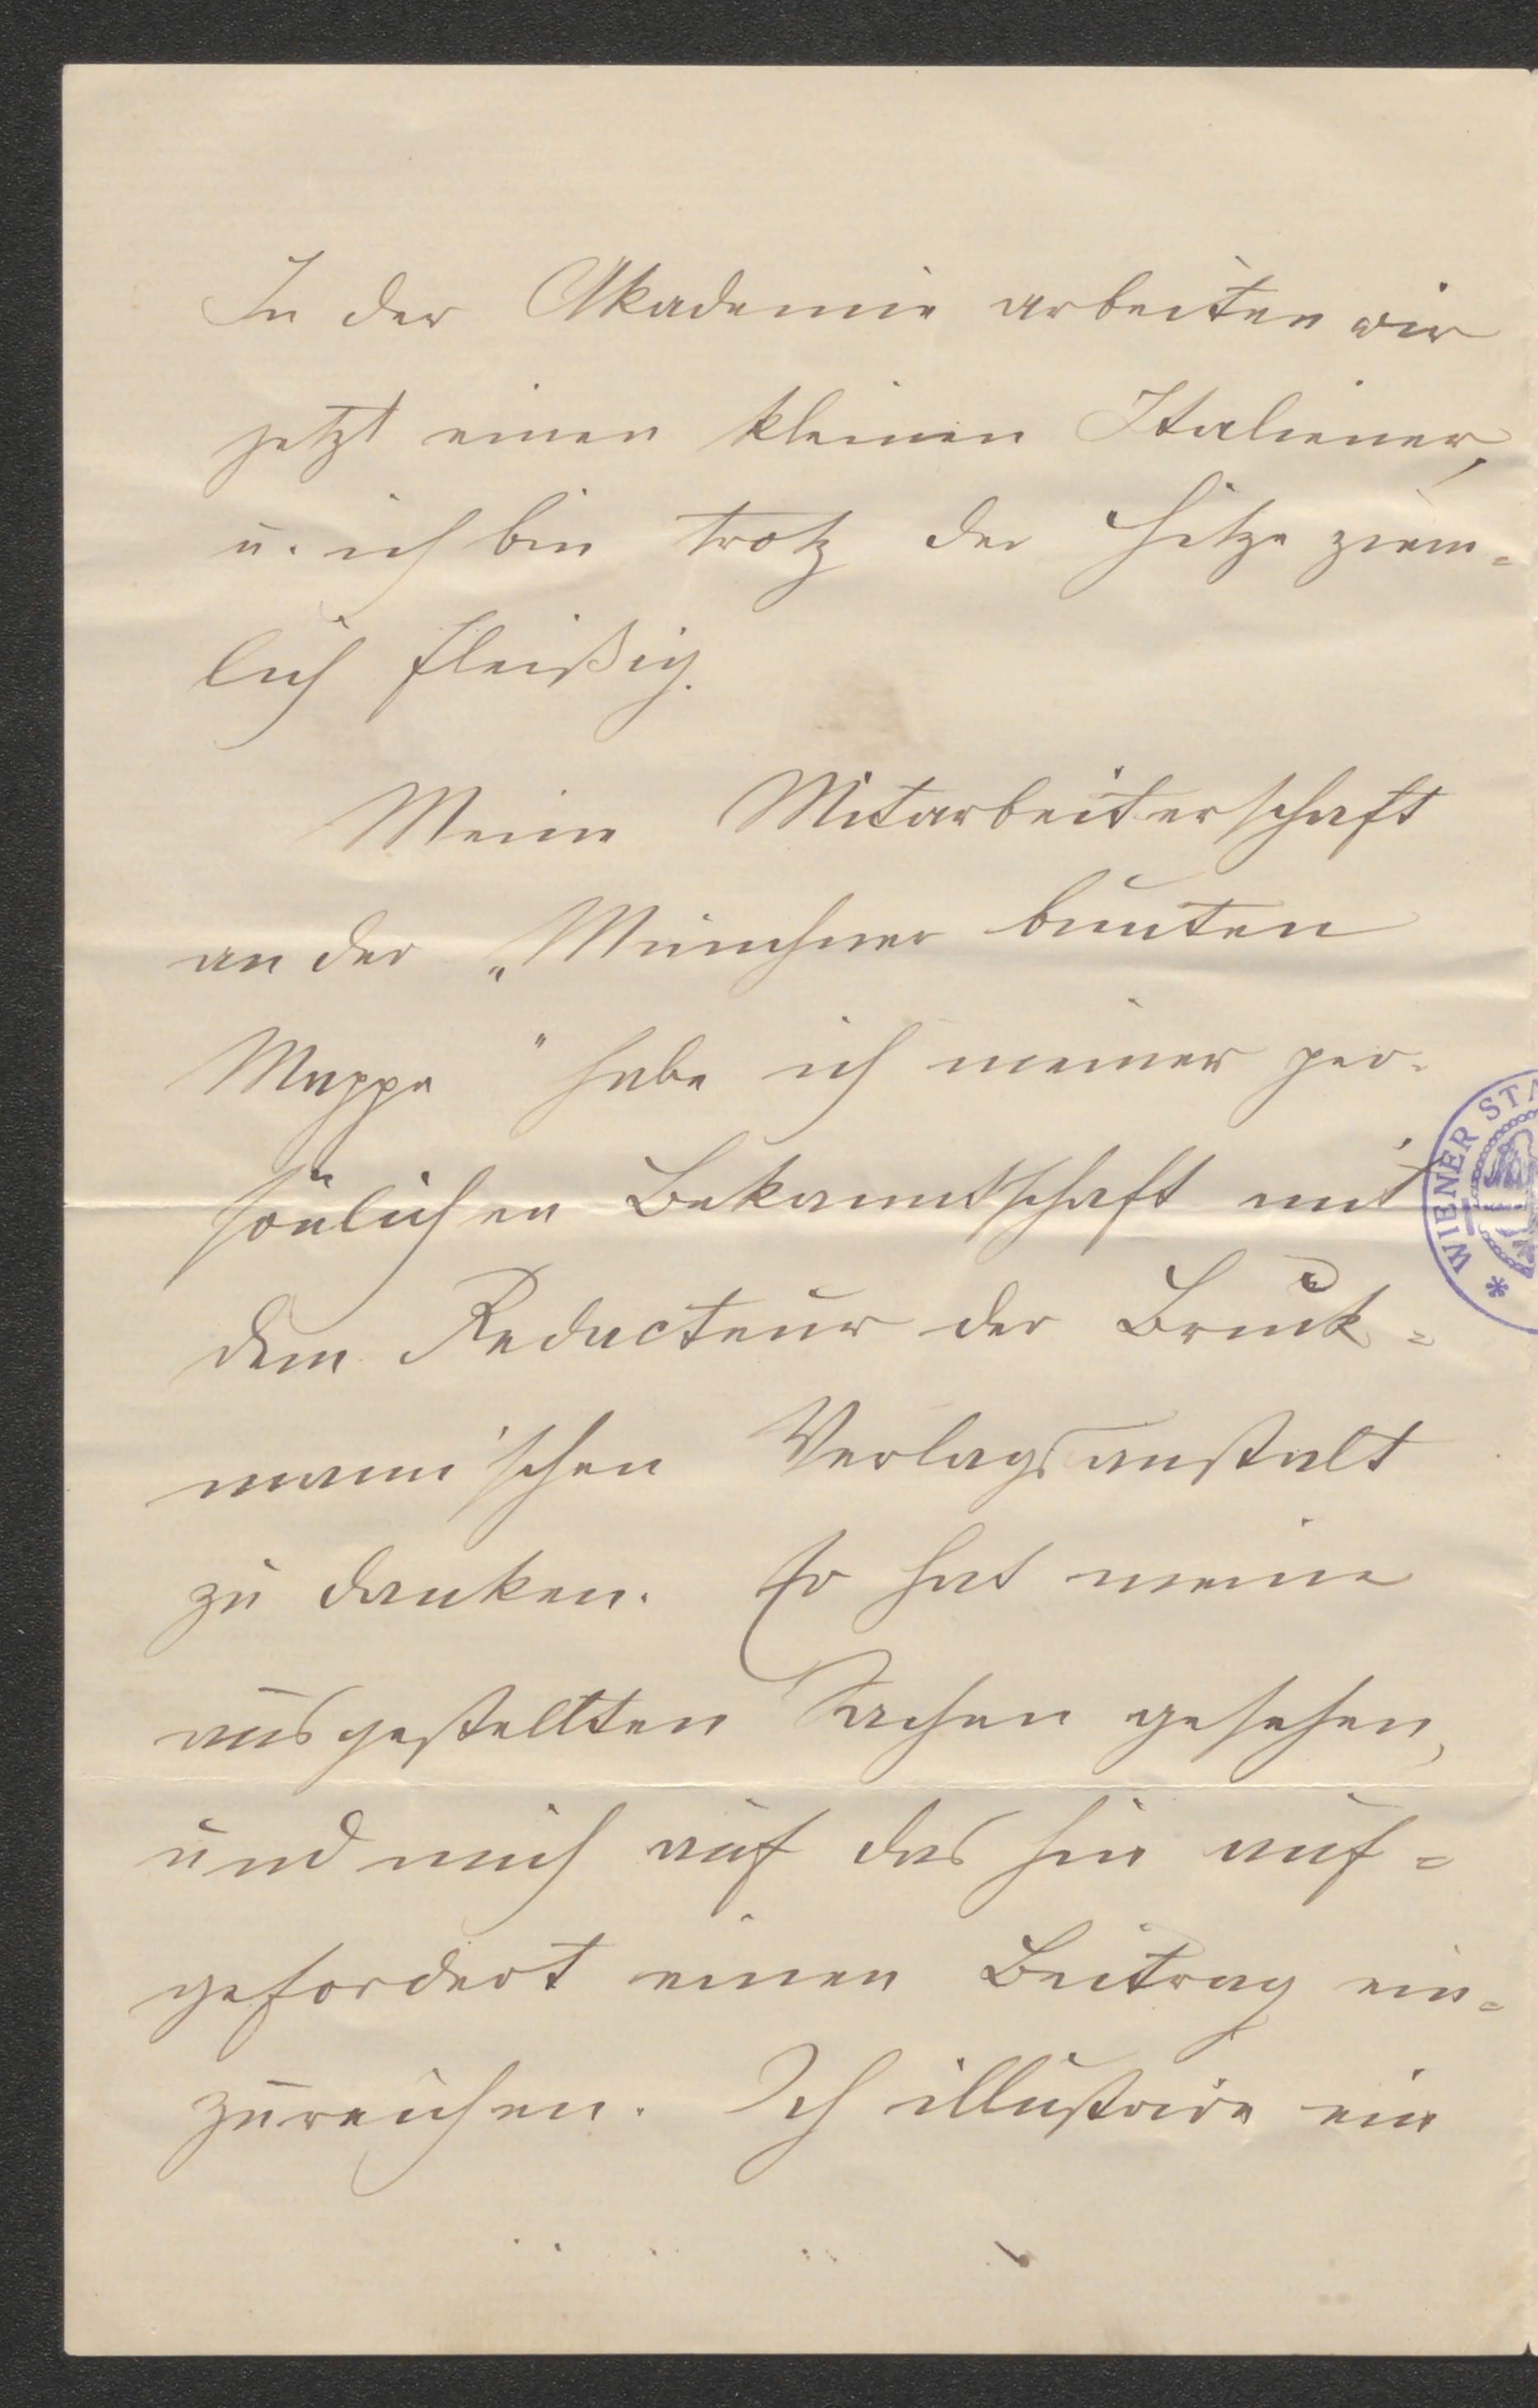 In der Akademie arbeiten wir
jetzt einen kleinen Italiener,
u. ich bin trotz der Hitze ziem=
lich fleißig.
Meine Mitarbeiterschaft
an der „Münchner bunten
Mappe" habe ich meiner per-
sönlichen Bekanntschaft mit
dem Redacteur der Bruck=
mann'schen Verlagsanstalt
zu danken. Er hat meine
ausgestellten Sachen gesehen,
und mich auf das hin auf=
gefordert einen Beitrag ein=
zureichen. Ich illustrire ein
* WIENER STA